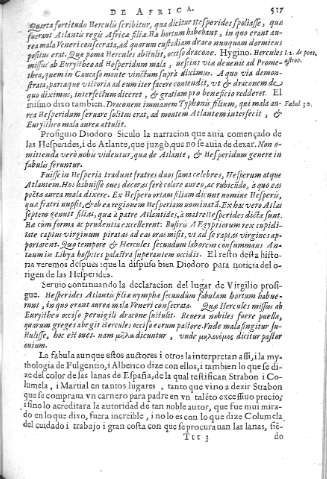 DE AFRICA. 517
Quarta fortitudo Herculis scribitur, qua dicitur Hesperides spoliasse, quæ
fuerunt Atlantis regis Africæ filiæ. Hæ hortum habebant, in quo erant au-
rea mala Veneri consecrata, ad quorum custodiam draco nunquam dormiens
positus erat. Quo poma Hercules abstulit, occiso dracone. Hygino. Hercules
missus ab Eurystheo ad Hesperidum mala, nescius viæ devenit ad Prome-
theum, quem in Caucaso monte vinctum supra diximus. A quo via demon-
strata, pergit
victoria ad eum iter facere contendit, vt & draconem de
quo diximus, interfectum diceret, & gratiam pro beneficio redderet. El
mismo dixo tambien. Draconem immanem Typhonis filium, qui mala au-
rea Hesperidum servare solitus erat, ad montem Atlantem interfecit,
& Eurystheo mala aurea attulit.
Prosiguio Diodoro Siculo la narracion que auia començado de
las Hesperides, i de Atlante, que juzgò, que no se auia de dexar. Non o-
mittenda verò nobis videntur, quæ de Atlante, & Hesperidum genere in
fabulis feruntur.
Fuisse in Hesperia tradunt fratres duos fama celebres, Hesperum atque
Atlantem. Hos habuisse oues decoras ferè colore aureo, ac rubicundo, à quo eas
poëtæ aurea mala dixere. Ex Hespero natam filiam dicunt nomine Hesperis,
quam fratri nupsit, & ab ea regionem Hesperiam nominatã. Ex hac verò Atlas
septem genuit filias, quæ à patre Atlantides, à matre Hesperides dictæ sunt.
Hæ cum forma ac prudentia excellerent: Busiris Ægyptiorum rex cupidi-
tate captus virginum piratas ad eas misit, vt ad se raptas virgines ap-
portarent. Quo tempore & Hercules secundum laborem consummans An-
tæum in Libya hospites palæstra superantem occidit. El resto desta histo-
ria veremos despues: que la dispuso bien Diodoro para noticia del o-
rigen de las Hesperides.
Servio continuando la declaracion del lugar de Virgilio prosi-
gue. Hesperides Atlantis filiæ nymphæ secundum fabulam hortum habue-
runt, in quo erant aurea mala Veneri consecrata. Quæ Hercules missus ab
Eurystheo occiso pervigili dracone sustulit. Revera nobiles fuere puellæ,
quarum greges abegit Hercules occiso eorum pastore. Vnde mala fingitur su-
stulisse, hoc est oues. nam μῆλα dicuntur, vnde μηλονόμος dicitur pastor
ouium.
La fabula aunque estos auctores i otros la interpretan assi, i la my-
thologia de Fulgentio, i Alberico dize con ellos, i tambien lo que se di-
ze del color de las lanas de España, de la qual testifican Strabon i Co-
lumela, i Martial en tantos lugares, tanto que vino a dezir Strabon
que se compraua vn carnero para padre en vn talẽto excessiuo precio,
i sino lo acreditara la autoridad de tan noble autor, que fue mui mira-
do en lo que dixo, fuera increible, i no lo es con lo que dize Columela
del cuidado i trabajo i gran costa con que se procuraua las lanas, siẽ-
Ttt 3 do